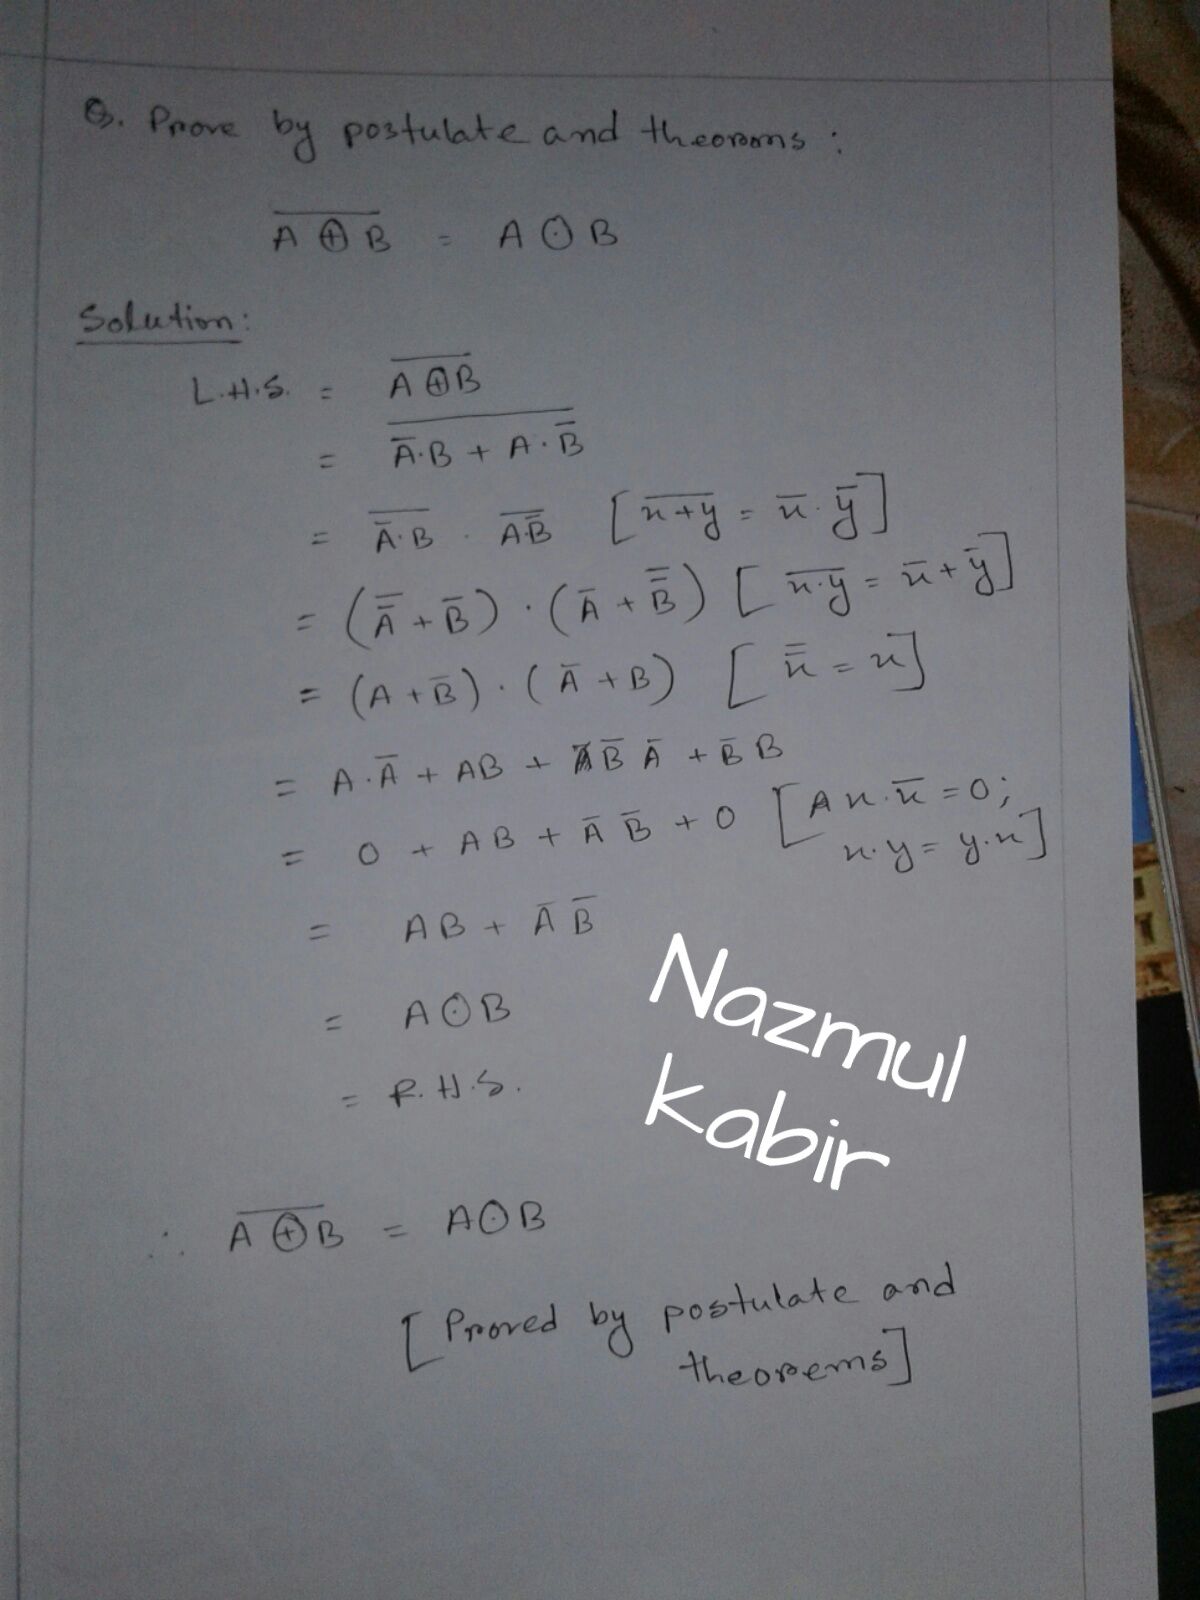 Q. Prove by postulate and theorems :
A̅ ̅⊕̅ ̅B̅ = A ⊙ B
Solution:
L.H.S. = A̅ ̅⊕̅ ̅B̅
= \overline{A̅·B + A·B̅}
= \overline{A̅·B} · \overline{A·B̅} [\overline{x+y} = x̅·y̅]
= (A̿ + B̅) · (A̅ + B̿) [\overline{x·y} = x̅ + y̅]
= (A + B̅) · (A̅ + B) [x̿ = x]
= A·A̅ + AB + B̅ A̅ + B̅ B
= 0 + AB + A̅ B̅ + 0 [A x·x̅ = 0;
x·y = y·x]
= AB + A̅ B̅
= A⊙B
= R.H.S.
Nazmul
Kabir
∴ A̅ ̅⊕̅ ̅B̅ = A⊙B
[Proved by postulate and
theorems]